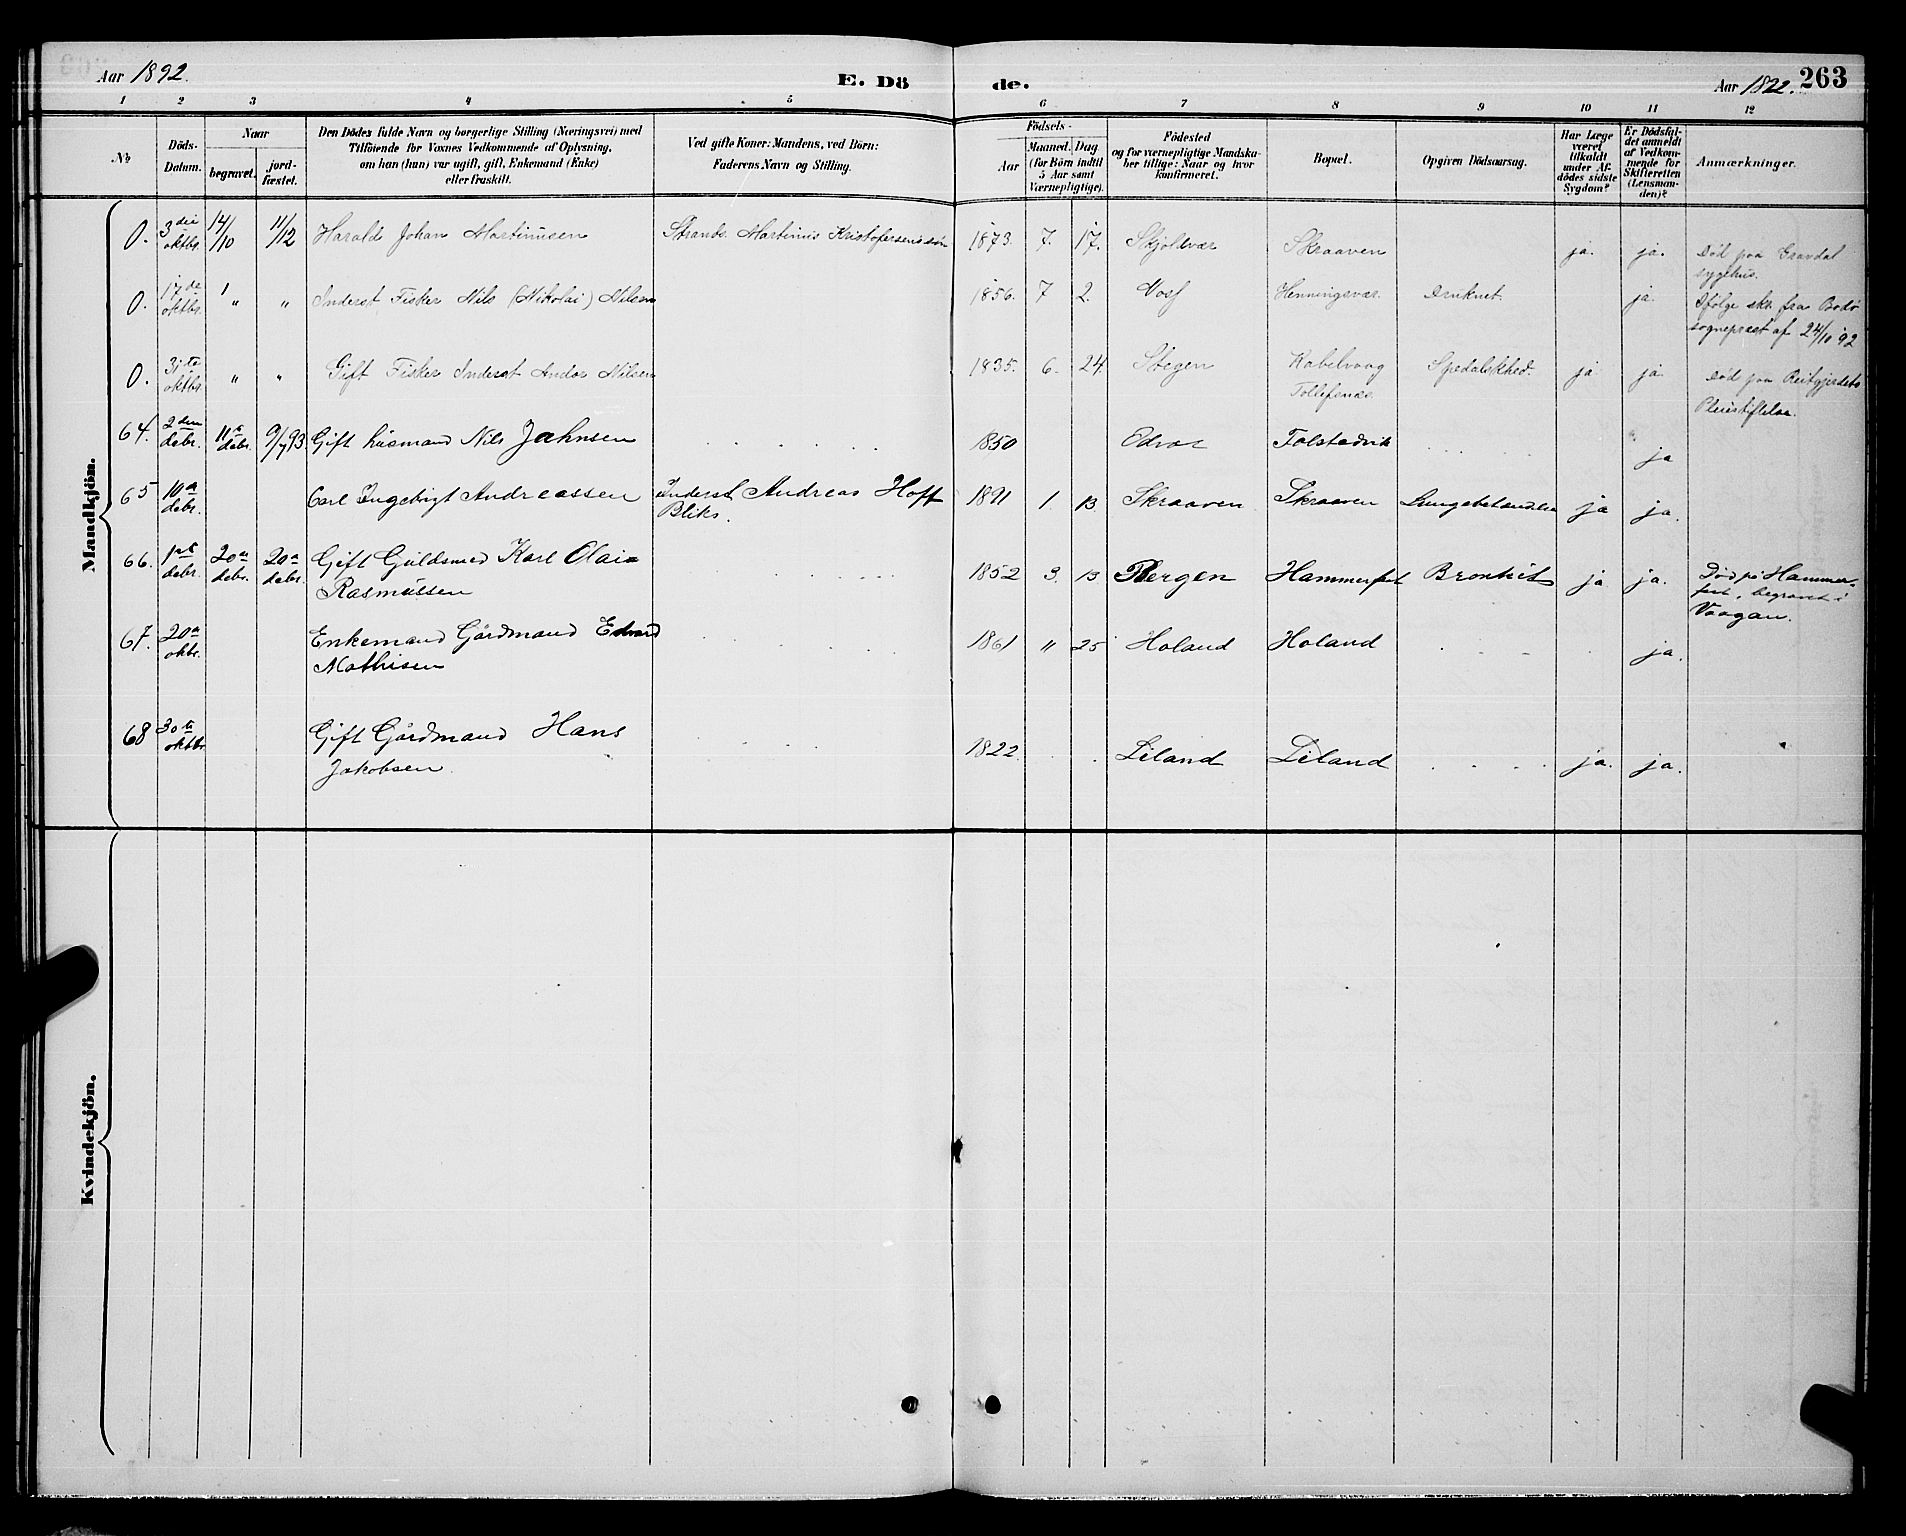 Aar 1892.
E. Dö
de.
Aar 1822.
263
1 2 3 4 5 6 7 8 9 10 11 12
№
Döds-
Datum.
Naar
begravet.
jord-
fæstet.
Den Dödes fulde Navn og borgerlige Stilling (Næringsvei) med
Tilföiende for Voxnes Vedkommende af Oplysning,
om han (hun) var ugift, gift, Enkemand (Enke)
eller fraskilt.
Ved gifte Koner: Mandens, ved Börn:
Faderens Navn og Stilling.
Födsels-
Aar
Maaned.
Dag
(for Börn indtil
5 Aar samt
Værnepligtige).
Födested
og for værnepligtige Mandska-
ber tillige: Naar og hvor
konfirmeret.
Bopæl.
Opgiven Dödsaarsag.
Har Læge
været
tilkaldt
under Af-
dödes sidste
Sygdom?
Er Dödsfal-
det anmeldt
af Vedkom-
mende for
Skifteretten
(Lensman-
den)?
Anmærkninger.
Mandkjön.
0. 3die oktbr. 14/10 11/12 Harald Johan Martinusen Strands. Martinus Kristofersens søn 1873. 7. 17. Skjoldvær Skraaven ja. ja. Død paa Gravdal
sygehus.
0. 17de oktbr. " " Inderst Fisker Nils (Nikolai) Nilsen 1856. 7 2. Voss Henningsvær. Druknet. ja. Ifølge skr. fra Bodø
sognepræst af 24/10 92
0. 31te oktbr. " " Gift Fisker Inderst Andor Nilsen 1835. 6. 24 Stegen Kabelvaag Spedalskhed. ja ja. Død paa Reitgjerdets
Tollefsnæs.
Pleiestiftelse.
64. 2den debr. 11te debr. 9/7 93 Gift husmand Nils Jahnsen 1850 Folstadvik ja
65 10de debr. Carl Ingebrigt Andreassen Inderst Andreas Hoff 1891 1. 13 Skraaven Skraaven Lungebetændelse ja ja.
Bliks.
66. 1ste debr. 20de debr. 20de debr. Gift Guldsmed Karl Olai 1852 3. 13 Bergen Hammerfest Bronkit ja ja. Død på Hammer-
Rasmussen
fest, begravet i
Vaagan.
67. 20de okbr. Enkemand Gårdmand Edvard 1861 " 25 Holand Holand ja.
Mathisen
68 30te oktbr Gift Gårdmand Hans 1822. Liland Liland ja. ja.
Jakobsen
Kvindekjön.